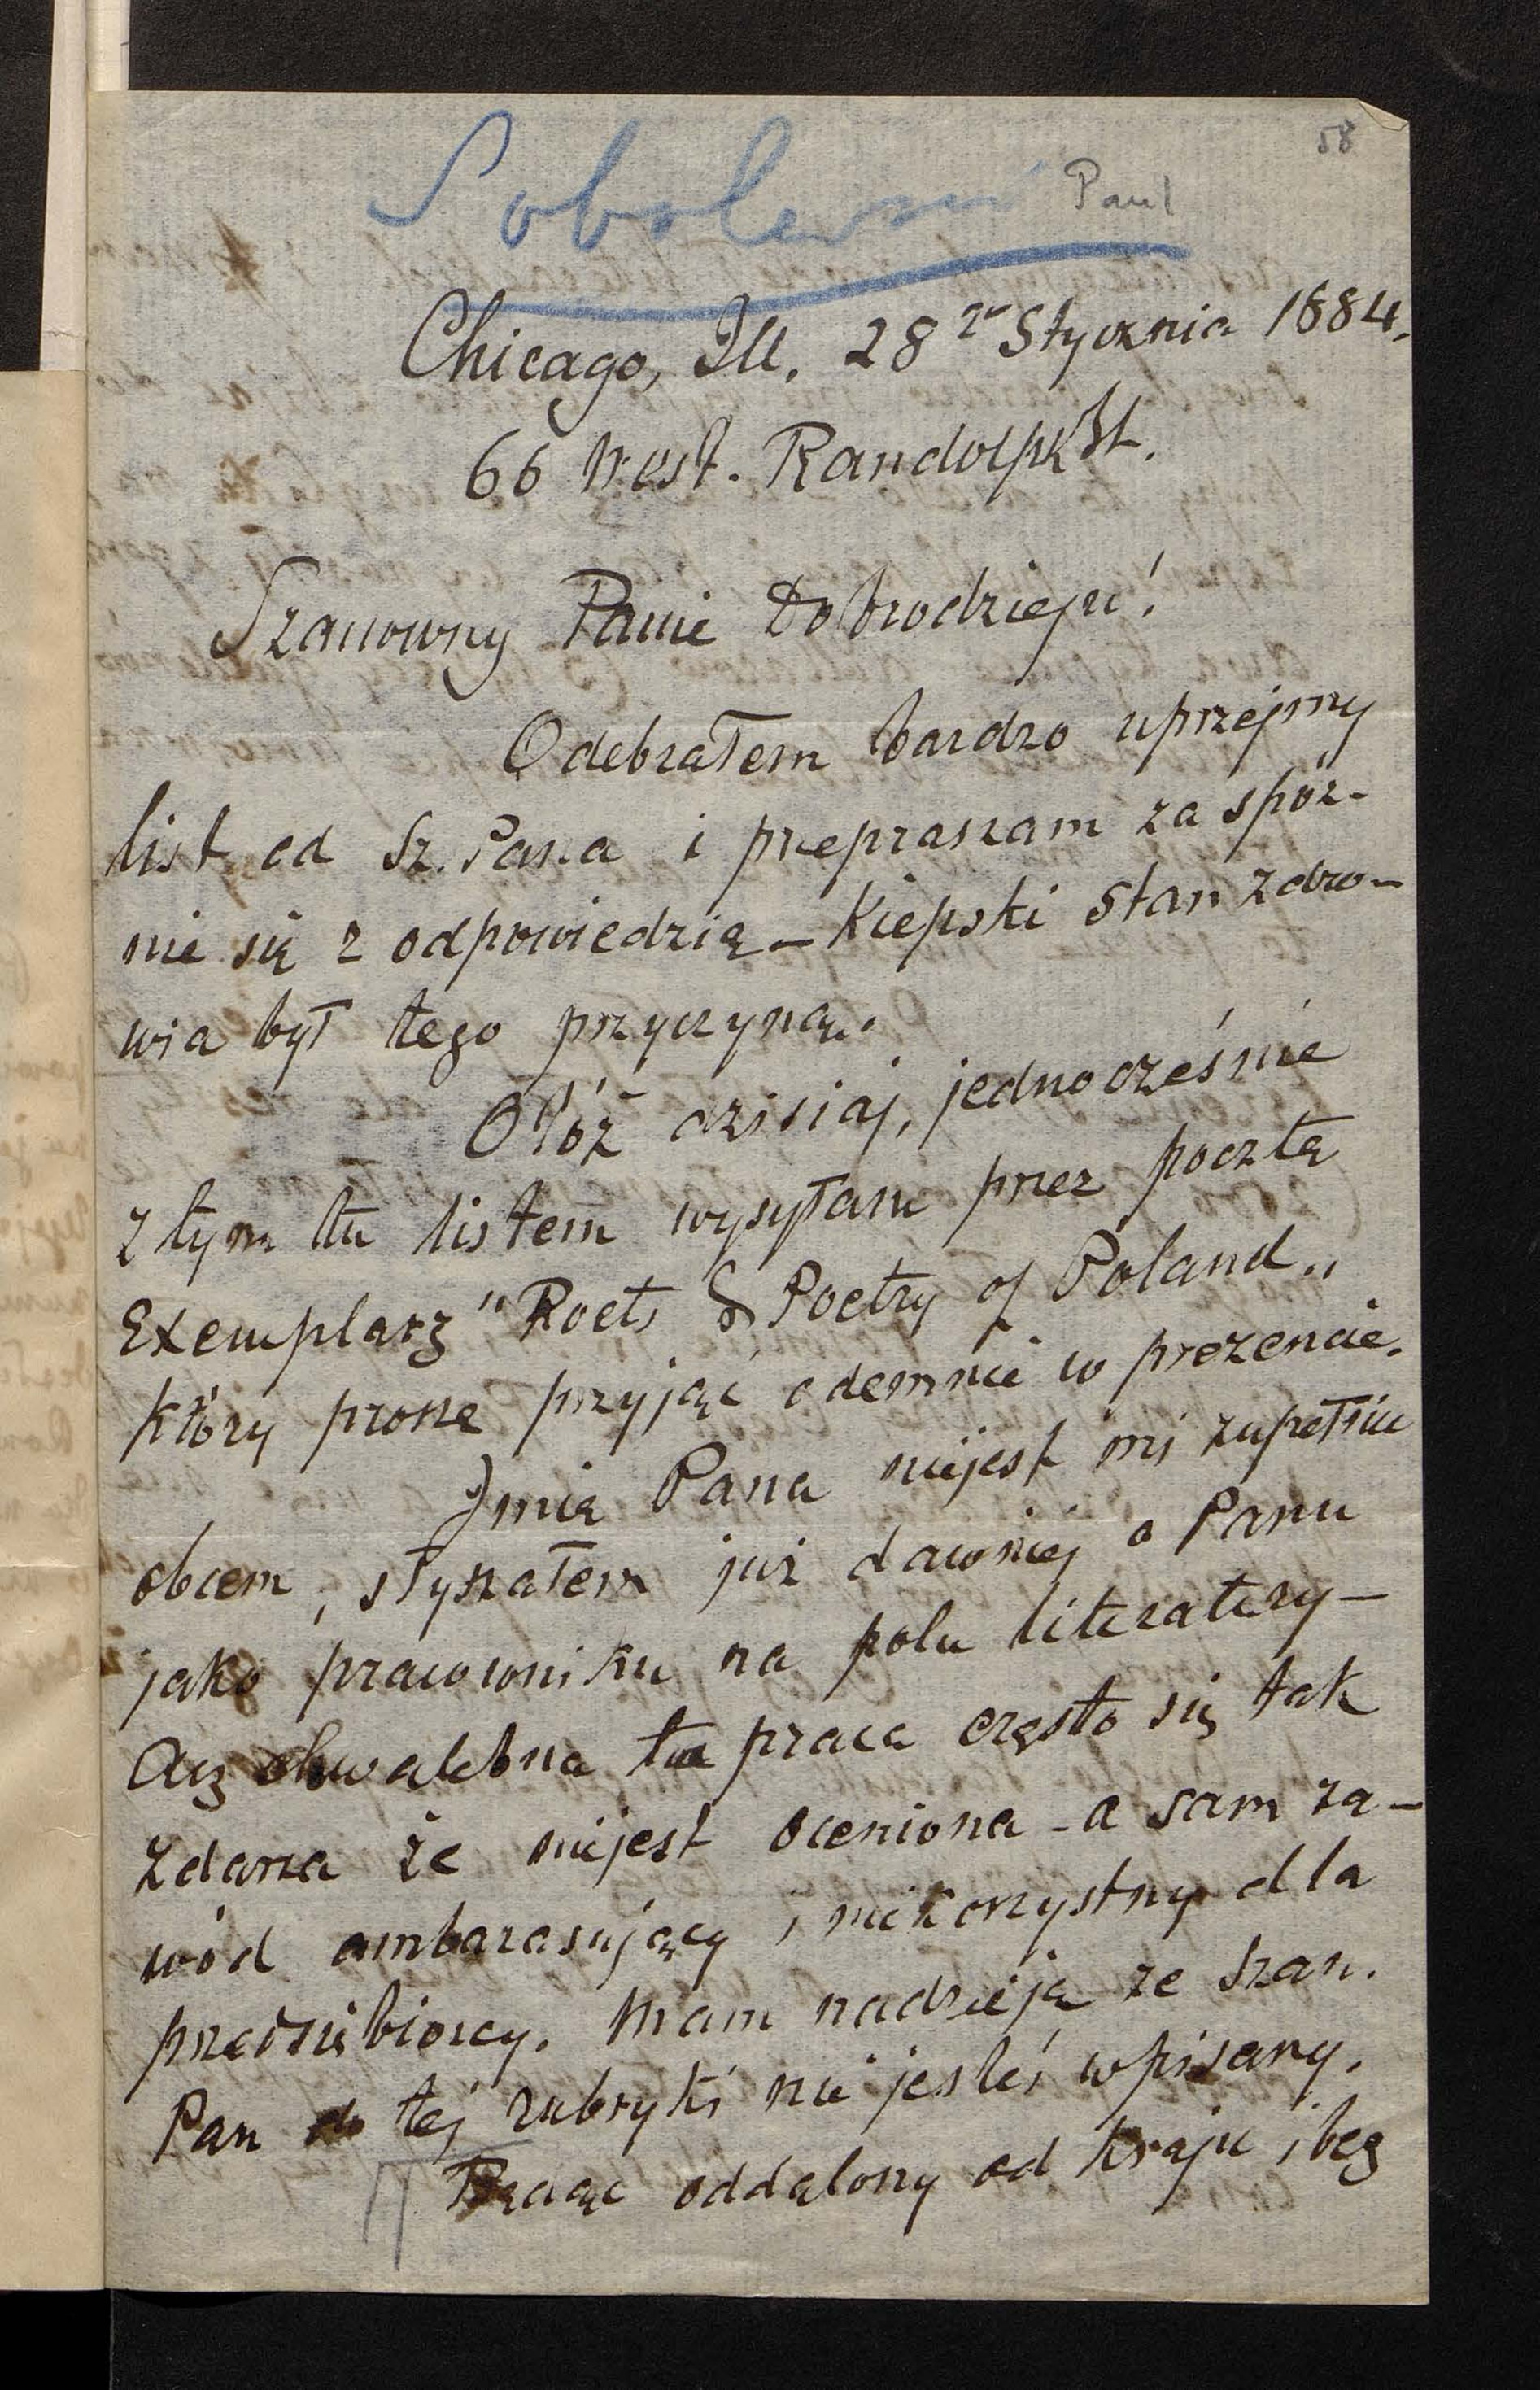 58
Sobolewski Paul
Chicago, Ill. 28 Stycznia 1884.
66 West. Randolph St.
Szanowny Panie Dobrodzieju!
Odebrałem bardzo uprzejmy
list od Sz. Pana i przepraszam za spóź-
nie się z odpowiedzią – Kiepski stan zdro-
wia był tego przyczyną.
Otóż dzisiaj, jednocześnie
z tym tu listem wysyłam przez pocztą
Exemplarz "Poets & Poetry of Poland„
który proszę przyjąć odemnie w prezencie.
Imię Pana niejest mi zupełnie
obcem, słyszałem już dawniej o Panu
jako pracowniku na polu literatury –
Acz chwalebna ta praca często się tak
zdarza że niejest oceniona – a sam za-
wód ambarasujący i niekorzystny dla
przedsiębiorcy. Mam nadzieją ze szan.
Pan do tej rubryki nie jesteś wpisany.
Będąc oddalony od kraju i bez